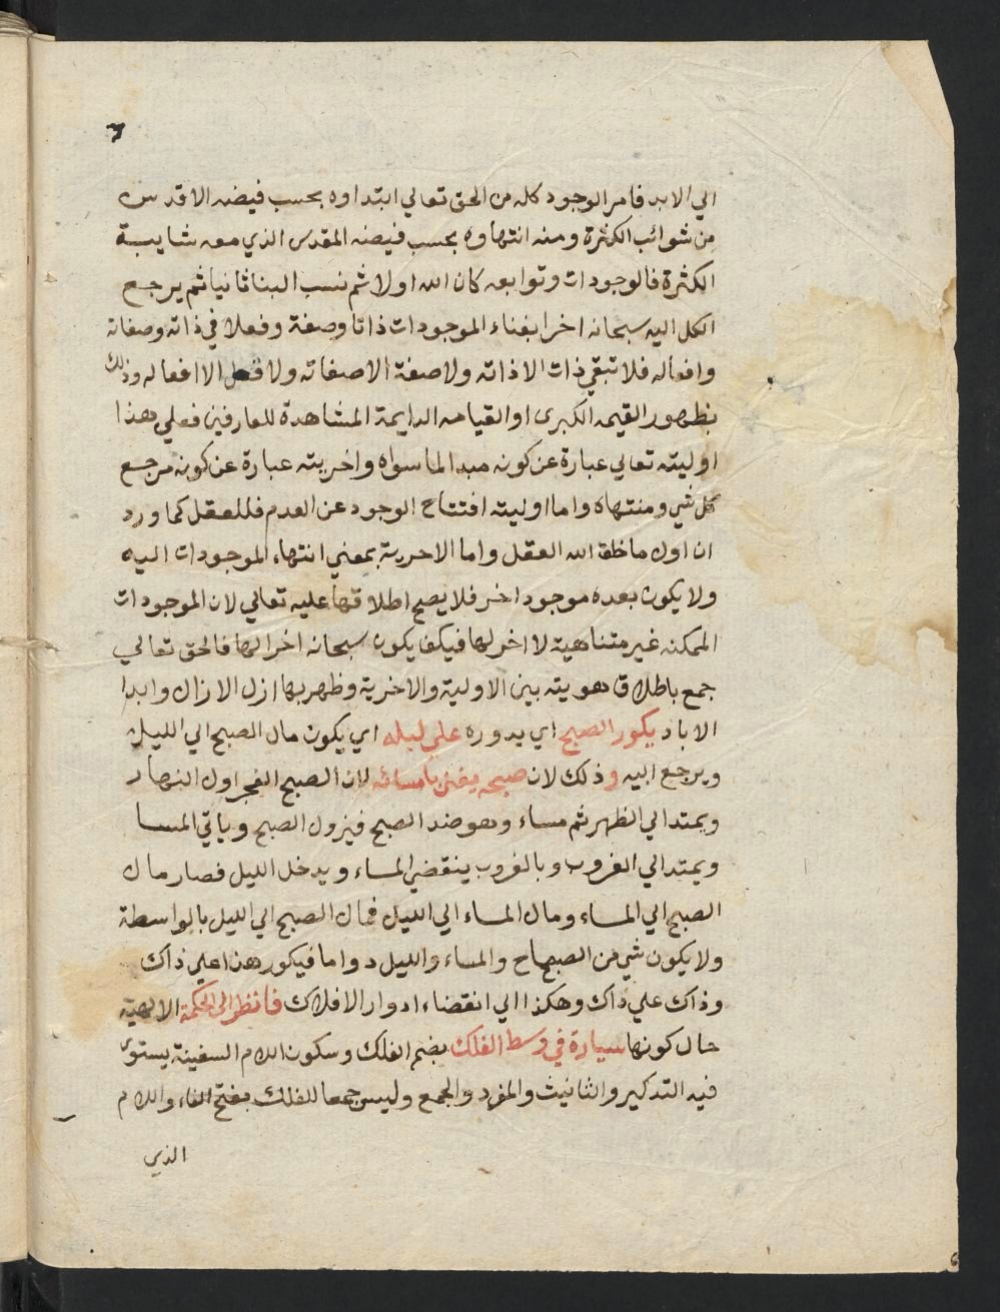 الي الابد فامر الوجود كله من الحق تعالي ابتداوه بحسب فيضه الاقدس
من شوائب الكثرة ومنه انتهاوه بحسب فيضه المقدس الذي معه شايبة
الكثرة فالوجودات وتوابعه كان الله اولا ثم نسب الينا ثانيا ثم يرجع
الكل اليه سبحانه اخرا بفناء الموجودات ذاتا وصفة وفعلا في ذاته وصفاته
وافعاله فلا تبقي ذات الا ذاته ولا صفة الا صفاته ولا فعل الا افعاله وذلك
بظهور القيمه الكبرى او القيامه الدايمة المشاهدة للعارفين فعلي هذا
اوليته تعالي عبارة عن كونه مبدا لما سواه واخريته عبارة عن كونه مرجع
كل شي ومنتهاه واما اوليته افتتاح الوجود عن العدم فللعقل كما ورد
ان اول ما خلق الله العقل واما الاخرية بمعني انتهاء الموجودات اليه
ولا يكون بعده موجود اخر فلا يصح اطلاقها عليه تعالي لان الموجودات
الممكنه غير متناهية لا اخر لها فيكف يكون سبحانه اخرا لها فالحق تعالي
جمع باطلاق هويته بين الاولية والاخرية وظهر بها ازل الازال وابدا
الاباد يكور الصبح اي يدوره علي ليله اي يكون مال الصبح الي الليل
ويرجع اليه وذلك لان صبحه يفني بامسائه لان الصبح الفجر اول النهار
ويمتد الي الظهر ثم مساء وهو ضد الصبح فيزول الصبح وياتي المسا
ويمتد الي الغروب وبالغروب ينقضي المساء ويدخل الليل فصار مال
الصبح الي المساء ومال المساء الي الليل فمال الصبح الي الليل بالواسطة
ولا يكون شي من الصبحاح والمساء والليل دواما فيكور هذا علي ذاك
وذاك علي ذاك وهكذا الي انقضاء ادوار الافلاك فانظر الى الحكمة الالهية
حال كونها سيارة في وسط الفلك بضم الفلك وسكون اللام السفينة يستوي
فيه التدكير والثانيث والمفرد والجمع وليس جمعا للفلك بفتح الفاء واللام
الذي